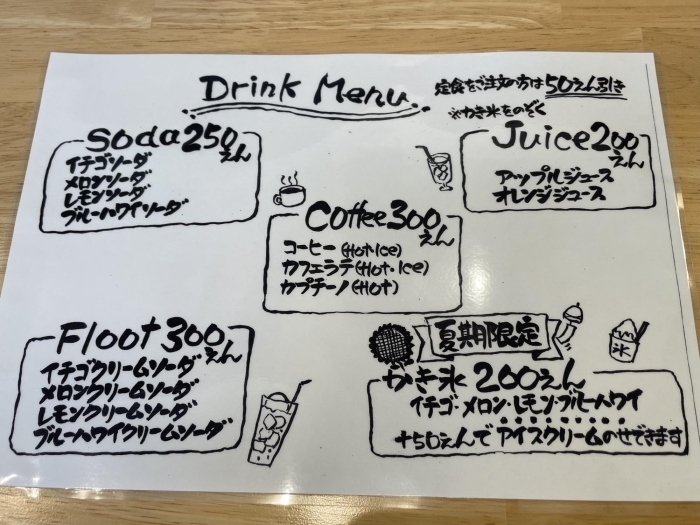 Drink Menu
定食をご注文の方は50えん引き
※かき氷をのぞく
Soda 250えん
イチゴソーダ
メロンソーダ
レモンソーダ
ブルーハワイソーダ
Juice 200えん
アップルジュース
オレンジジュース
Coffee 300えん
コーヒー(Hot・Ice)
カフェラテ(Hot・Ice)
カプチーノ(Hot)
Floot 300えん
イチゴクリームソーダ
メロンクリームソーダ
レモンクリームソーダ
ブルーハワイクリームソーダ
夏期限定
氷
かき氷 200えん
イチゴ・メロン・レモン・ブルーハワイ
+50えんでアイスクリームのせできます